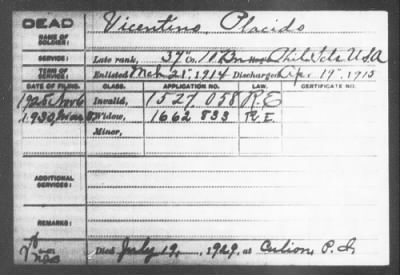 DEAD Vicentino, Placido
NAME OF SOLDIER:
SERVICE: Late rank, 37" Co. 11" Bn Phil Scts USA
TERM OF SERVICE: Enlisted Mch 21", 1914 Discharged Apr. 19", 1915
DATE OF FILING. CLASS. APPLICATION NO. LAW. CERTIFICATE NO.
1928 Nov 6 Invalid, 1527 058 R.E
1930 Widow, 1662 833 R.E.
Minor,
ADDITIONAL SERVICES:
REMARKS:
Died July 19, 1929, at Culion, P.I.